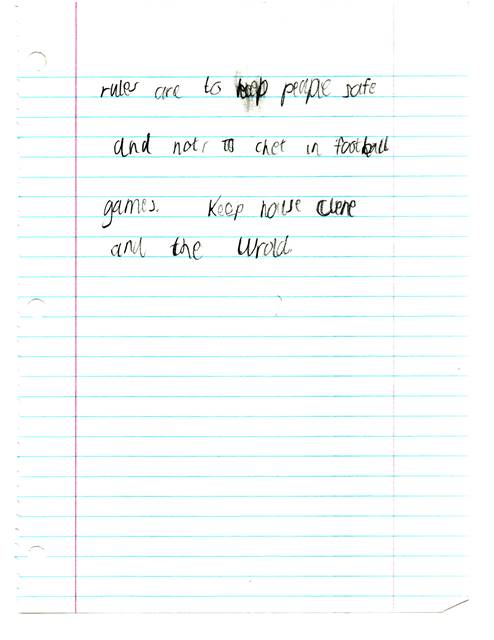 rules are to keep people safe
and not to chet in football
games. Keep house Clene
and the wrold.